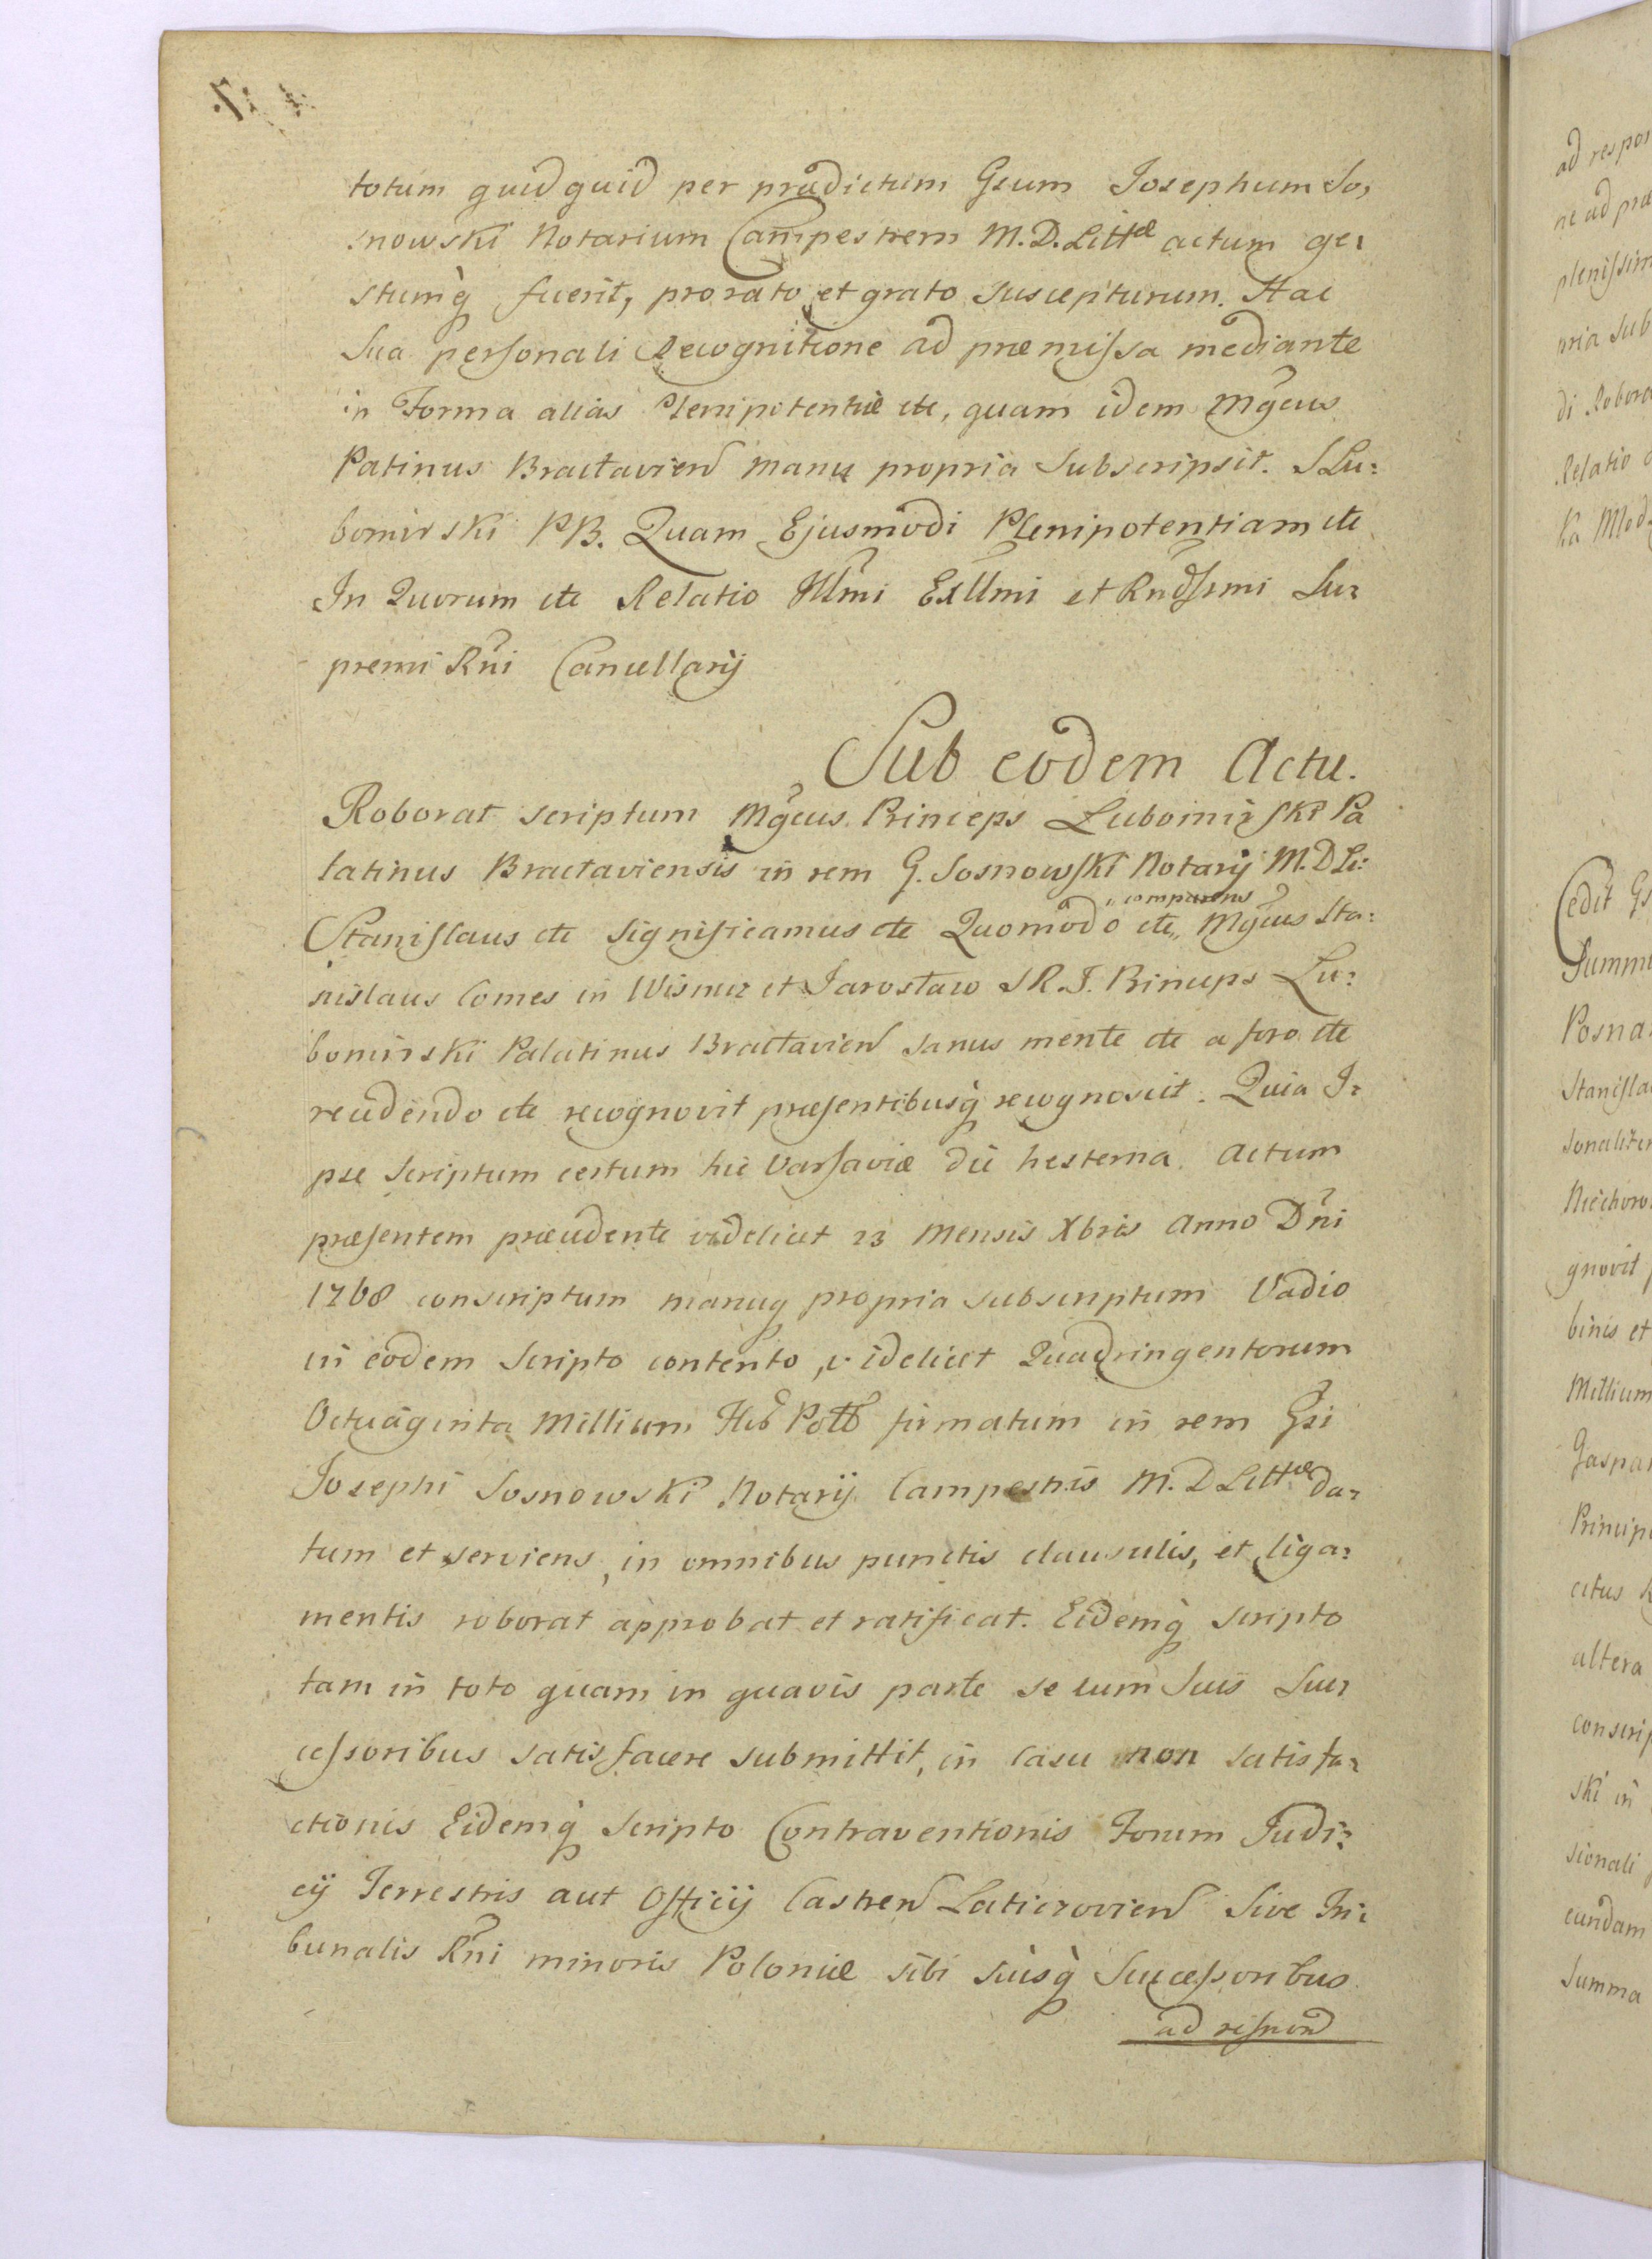 totum quidquid per prædictum Gsum Josephum So,
snowski Notarium Campestrem M. D. Littæ actum ge:
stumq̀ fuerit, pro rato et grato suscepturum. Hac
Sua personali Recognitione ad præmissa mediante
in Forma alias Plenipotentiæ etc, quam idem Mgcus
Patinus Bractavien manu propria Subscripsit. SLu:
bomirski PB. Quam Ejusmodi Plenipotentiam etc
In Quorum etc Relatio Illmi Exllmi et Rndssmi Su:
premi Rni Cancellarij
Sub eodem Actu.
Roborat scriptum Mgcus Princeps Lubomirski Pa
latinus Bractaviensis in rem G. Sosnowski Notarij M. D Li:
Stanislaus etc significamus etc Quomodo etc „ comparens Mgcus Sta:
nislaus Comes in Wisnicz et Jarosław S R. J. Princeps Lu:
bomirski Palatinus Bractavien sanus mente etc a foro etc
recedendo etc recognovit præsentibusq̀ recognoscit. Quia I:
pse Scriptum certum hic Varsaviæ die hesterna Actum
præsentem præcedente videlicet 23 Mensis Xbris Anno Dni
1768 conscriptum manuq propria subscriptum Vadio
in eodem Scripto contento, videlicet Quadringentorum
Octuaginta Millium Flrb Pollb firmatum in rem Gsi
Josephi Sosnowski Notarij Campestris M. D Littæ da:
tum et serviens, in omnibus punctis clausulis, et liga:
mentis roborat approbat et ratificat. Eidemq̀ Scripto
tam in toto quam in quavis parte se cum Suis Suc:
cessoribus satisfacere submittit, in Casu non satisfa:
ctionis Eidemq̀ Scripto Contraventionis Forum Judi:
cij Terrestris aut Officij Castren Laticzovien Sive Tri:
bunalis Rni minoris Poloniæ sibi suisq̀ Successoribus
ad respond
ad respon
ne ad præ
plenissim
pria Sub
di Robora
Relatio
Cedit Gs
Summ
Posna
Stanisla
sonaliter
gnovit
binis et
Millium
Gaspar
Princip
citus
altera
conscrip
ski in
sionali
eundam
Summa